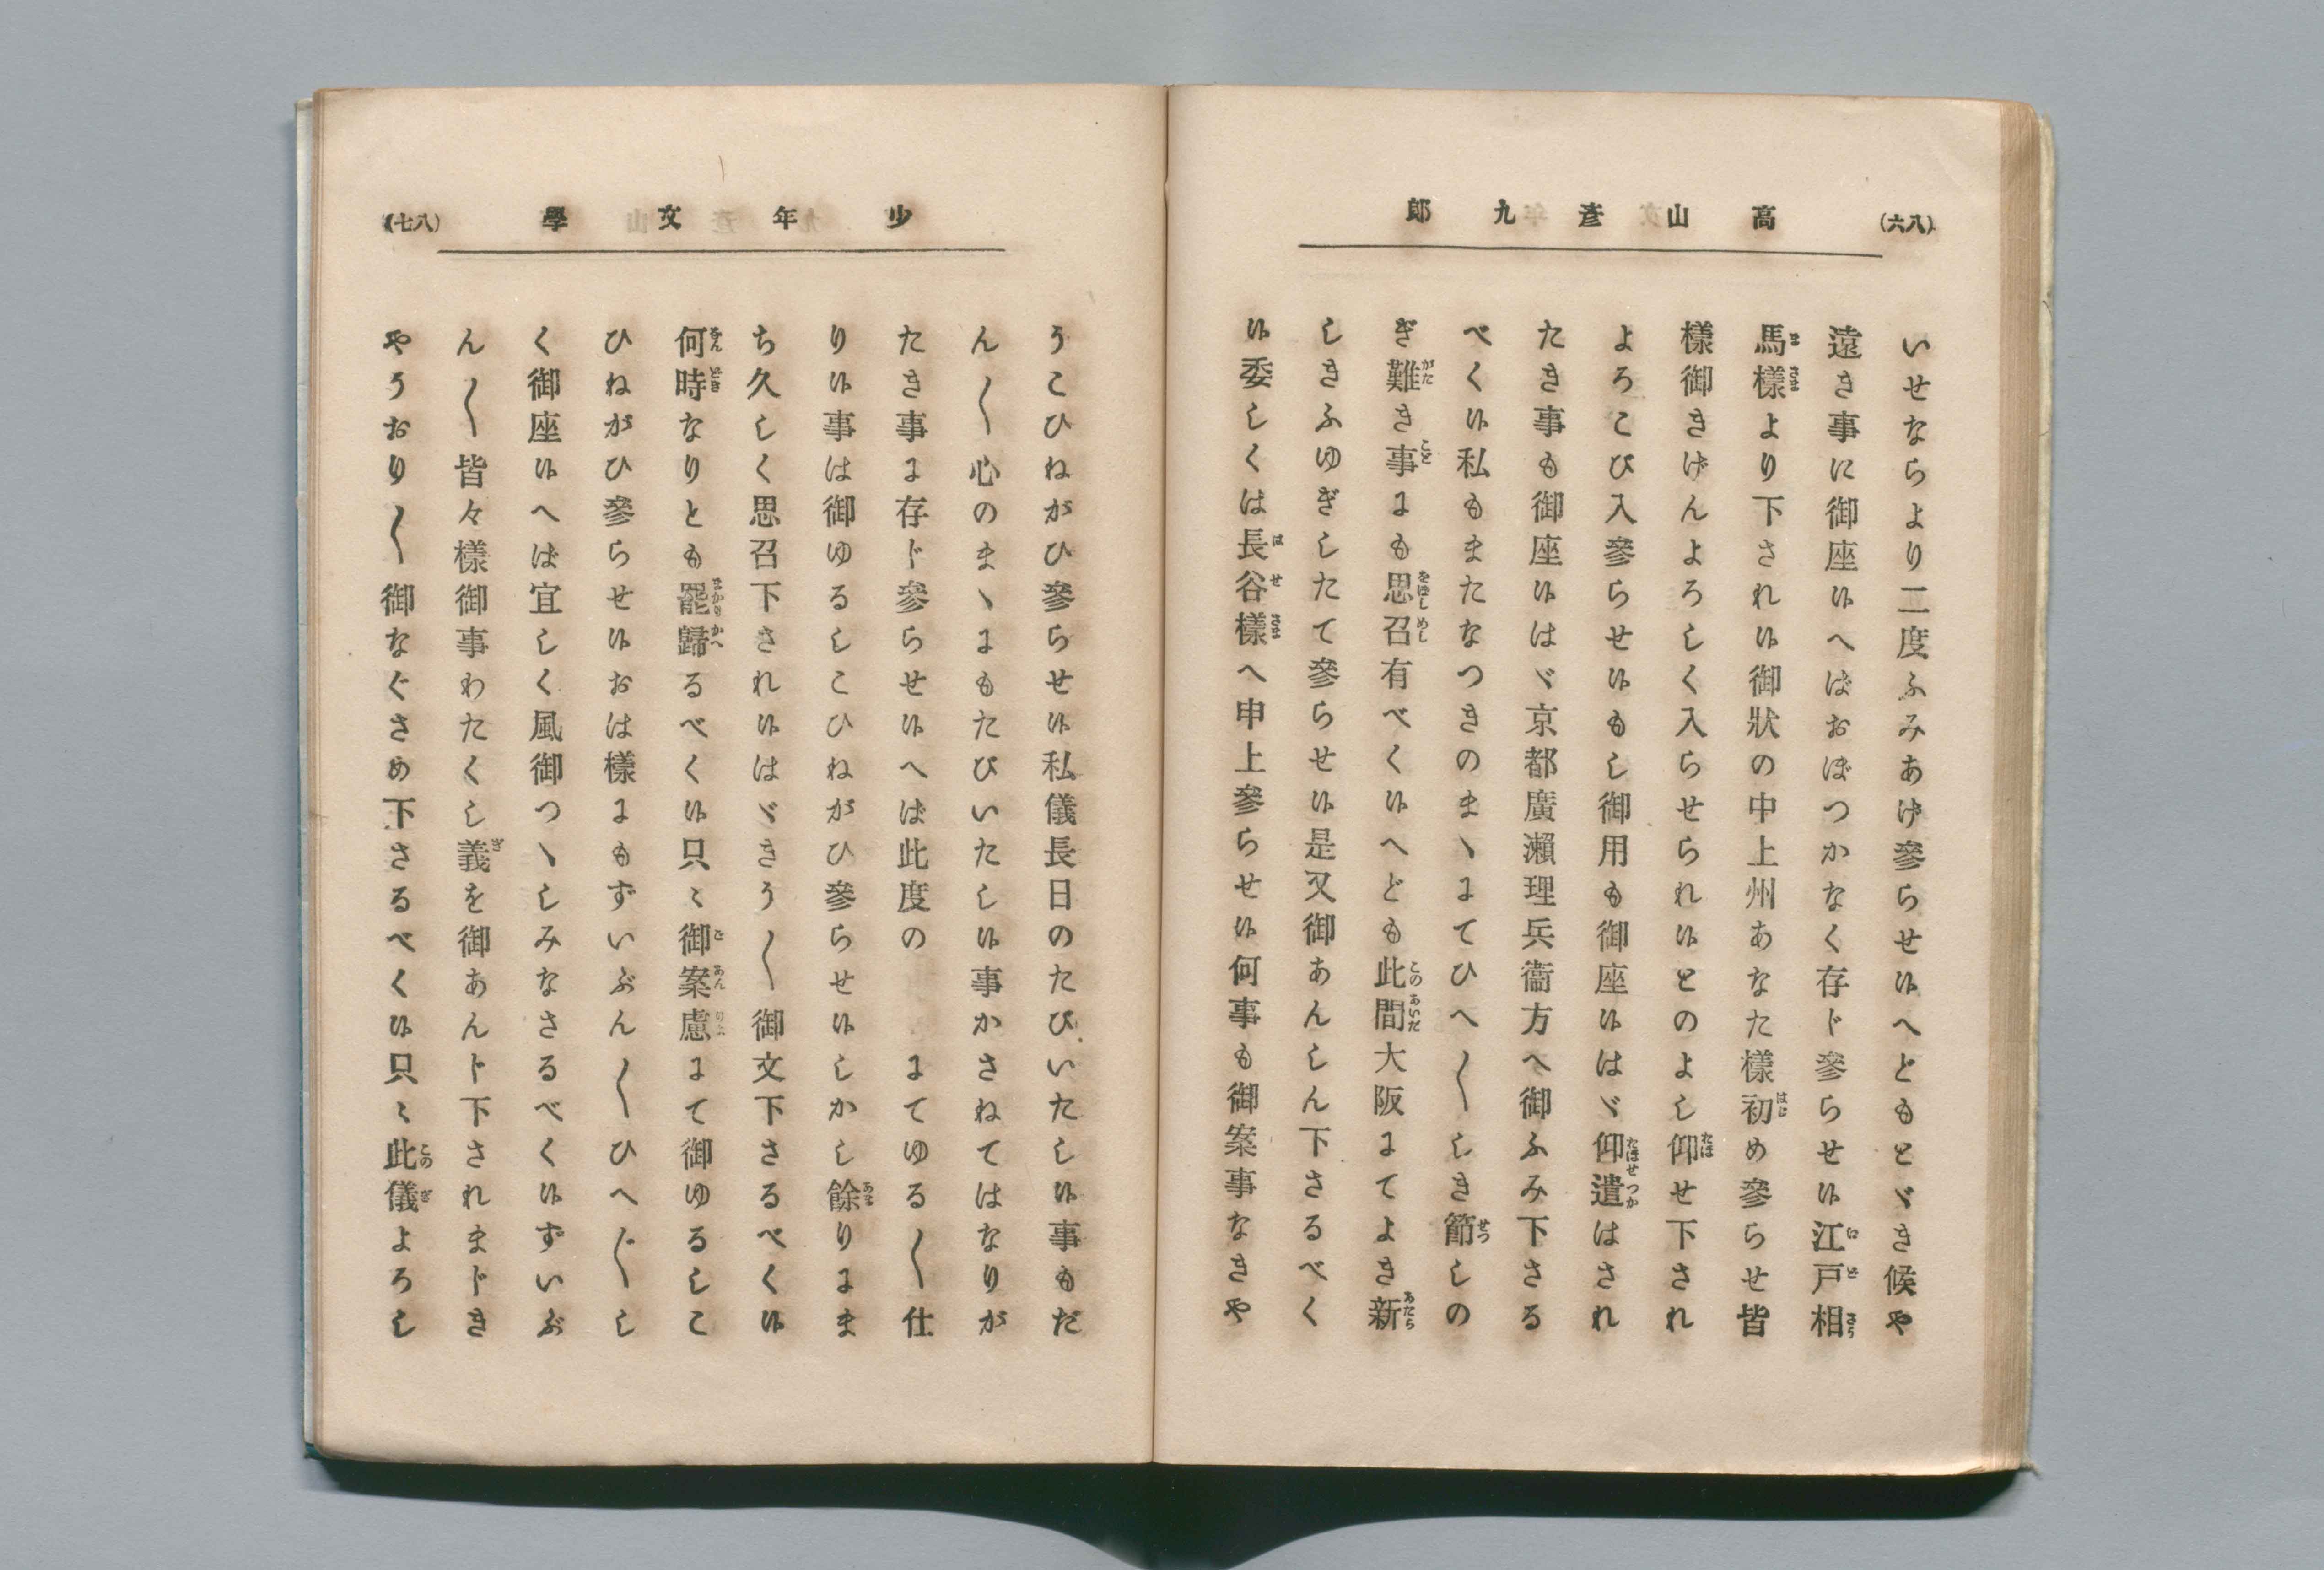 (八六)
高山彦九郎
いせならより二度ふみあけ參らせ候へともとゞき候や
遠き事に御座候へばおぼつかなく存ド參らせ候江戸相
馬樣より下され候御狀の中上州あなた樣初め參らせ皆
樣御きけんよろしく入らせられ候とのよし仰せ下され
よろこび入參らせ候もし御用も御座候はゞ仰遣はされ
たき事も御座候はゞ京都廣瀨理兵衞方へ御ふみ下さる
べく候私もまたなつきのまゝにてひへ〳〵しき節しの
ぎ難き事にも思召有べく候へども此間大阪にてよき新
しきふゆぎしたて參らせ候是又御あんしん下さるべく
候委しくは長谷樣へ申上參らせ候何事も御案事なきや
少年文學
(八七)
うこひねがひ參らせ候私儀長日のたびいたし候事もだ
ん〳〵心のまゝにもたびいたし候事かさねてはなりが
たき事に存ド參らせ候へば此度の にてゆる〳〵仕
り候事は御ゆるしこひねがひ參らせ候しかし餘りにま
ち久しく思召下され候はゞきう〳〵御文下さるべく候
何時なりとも罷歸るべく候只〻御案慮にて御ゆるしこ
ひねがひ參らせ候おは樣にもずいぶん〳〵ひへ〴〵し
く御座候へば宜しく風御つゝしみなさるべく候ずいぶ
ん〳〵皆々樣御事わたくし義を御あんド下されまドき
やうおり〳〵御なぐさめ下さるべく候只〻此儀よろし